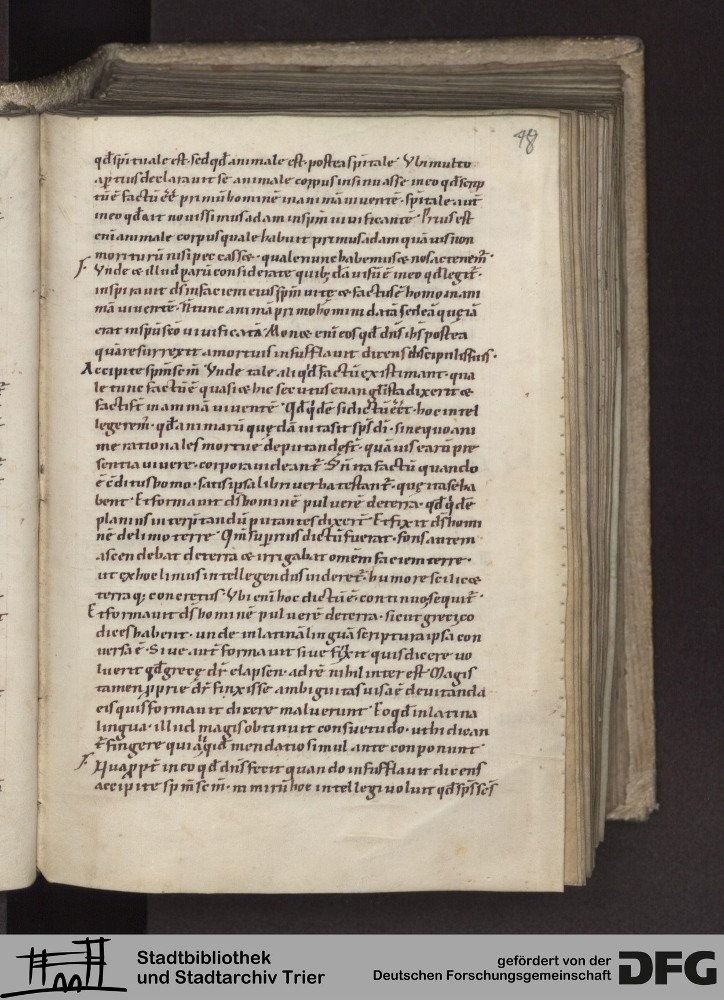 48
qd̄ spirituale est· sed qd̄ animale est· postea spitale· Vbi multo
apertius declarauit se animale corpus insinuasse in eo qd̄ scrip
tū ē factū ēē primū hominē in animā uiuentē· spitale aut̄
in eo qd̄ ait nouissimus adam in spm̄ uiuificantē· Prius est
eni animale corpus quale habuit primus adam quāuis non
moriturū nisi peccasset· quale nunc habemus et nos
Vnde et illud parū considerate quib;dā uisū ē in eo qd̄ legit̄·
inspirauit ds̄ in faciem eius spm̄ uitę et factus ē homo in ani
mā uiuentē· N̄ tunc animā primo homini datā sed eā quę iā
erat in spū sc̄o uiuificatā· Mouet enī eos qd̄ dn̄s ih̄s postea
quā resurrexit a mortuis insufflauit dicens discipulis suis·
Accipite spm̄ sc̄m· Vnde tale aliqd̄ factū existimant· qua
le tunc factū ē quasi et hic secutus euangłista dixerit et
facti st̄ in animā uiuentē· Qd̄ qdē si dictū ēēt· hoc intel
legerem̄· qd̄ animarū quędā uita sit sps̄ dī· sine quo ani
me rationales mortuę deputandę st̄· quāuis earū pre
sentia uiuere corpora uideant̄· Sꝫ n̄ ita factū quando
ē cditus homo· satis ipsa libri uerba testant̄· quę ita se ha
bent· Et formauit ds̄ hominē puluerē de terra· qd̄ qdē
planius interp̄tandū putantes dixer̄· Et fixit ds̄ homi
nē de limo terre· Qm̄ supius dictū fuerat· fons autem
ascendebat de terra et irrigabat omēm faciem terre·
ut ex hoc limus intellegendus uideret̄· humore scilicet
terraq; concretus· Vbi enī hoc dictū ē· continuo sequit̄·
Et formauit ds̄ hominē puluerē de terra· sicut greci co
dices habent· unde in latinā linguā scriptura ipsa con
uersa ē· Siue aut̄ formauit siue fixit quis dicere uo
luerit qd̄ grece dr̄ eplasen· ad rē nihil interest· Magis
tamen pprie dr̄ finxisse· ambiguitas uisa ē deuitanda
eis qui formauit dicere maluerunt· Eo qd̄ in latina
lingua· illud magis obtinuit consuetudo· ut hi dican
t̄ fingere qui aliqid̄ mendatio simulante conponunt·
Quappt̄ in eo qd̄ dn̄s fecit quando insufflauit dicens
accipite spm̄ sc̄m· nimirū hoc intellegi uoluit qd̄ sps̄ sc̄s
Stadtbibliothek
und Stadtarchiv Trier
gefördert von der
Deutschen Forschungsgemeinschaft
DFG